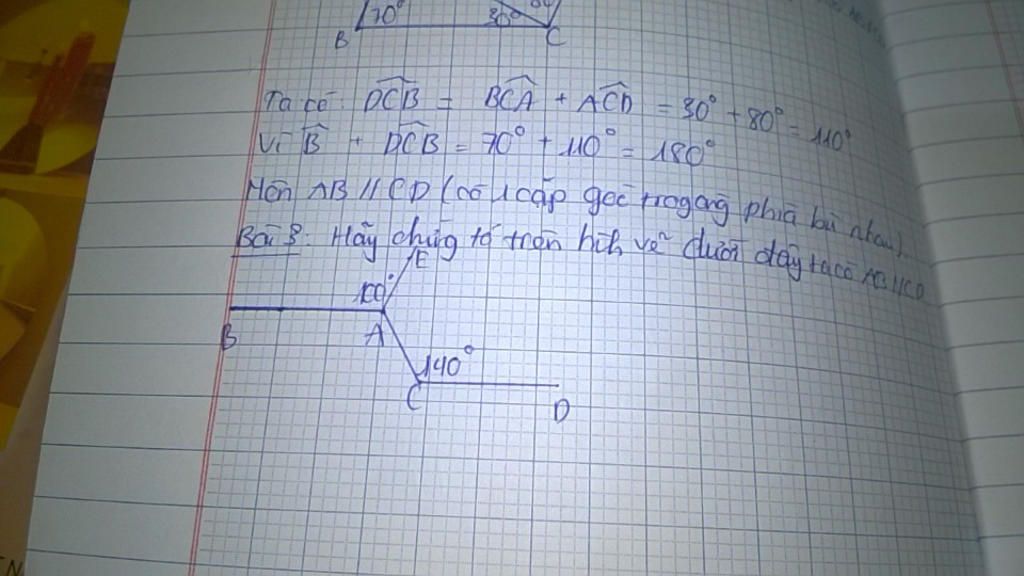 70° 30° 80°
B C
Ta có: DCB = BCA + ACD = 30° + 80° = 110°
Vì B + DCB = 70° + 110° = 180°
Nên AB // CD (có 1 cặp góc trong phía bù nhau)
Bài 3: Hãy chứng tỏ trên hình vẽ dưới đây ta có AB // CD
E
100°
B A
140°
C D